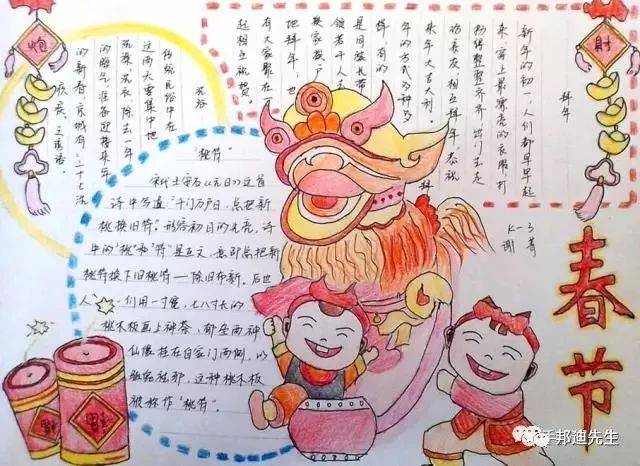 拜年
新年的初一，人们都早早起
来，穿上最漂亮的衣服，打
扮得整整齐齐，出门去走
访亲友，相互拜年，恭祝
来年大吉大利。拜
年的方式多种多
样，有的是同族长带
领若干人去
挨家挨户
地拜年，也
有大家聚在
起相互祝贺。
财
炮
洗浴
传统民俗中在
这两天要集中地
洗澡、洗衣，除去一年
的晦气，准备迎接来年
的新春，京城有：二十七洗
疚疾，之谚语。
“桃符”
宋代王安石《元日》这首
诗中写道“千门万户日，总把新
桃换旧符。”形容初日的光亮，诗
中的“桃”和“符”是互文，意即总把新
桃符换下旧桃符——除旧布新。后世
人们用一寸宽，七八寸长的
桃木板画上神荼、郁垒两神
仙像挂在自家门两侧，以
驱鬼祛邪，这种桃木板
被称作“桃符”。
K-3
春节
福
财
邦迪先生